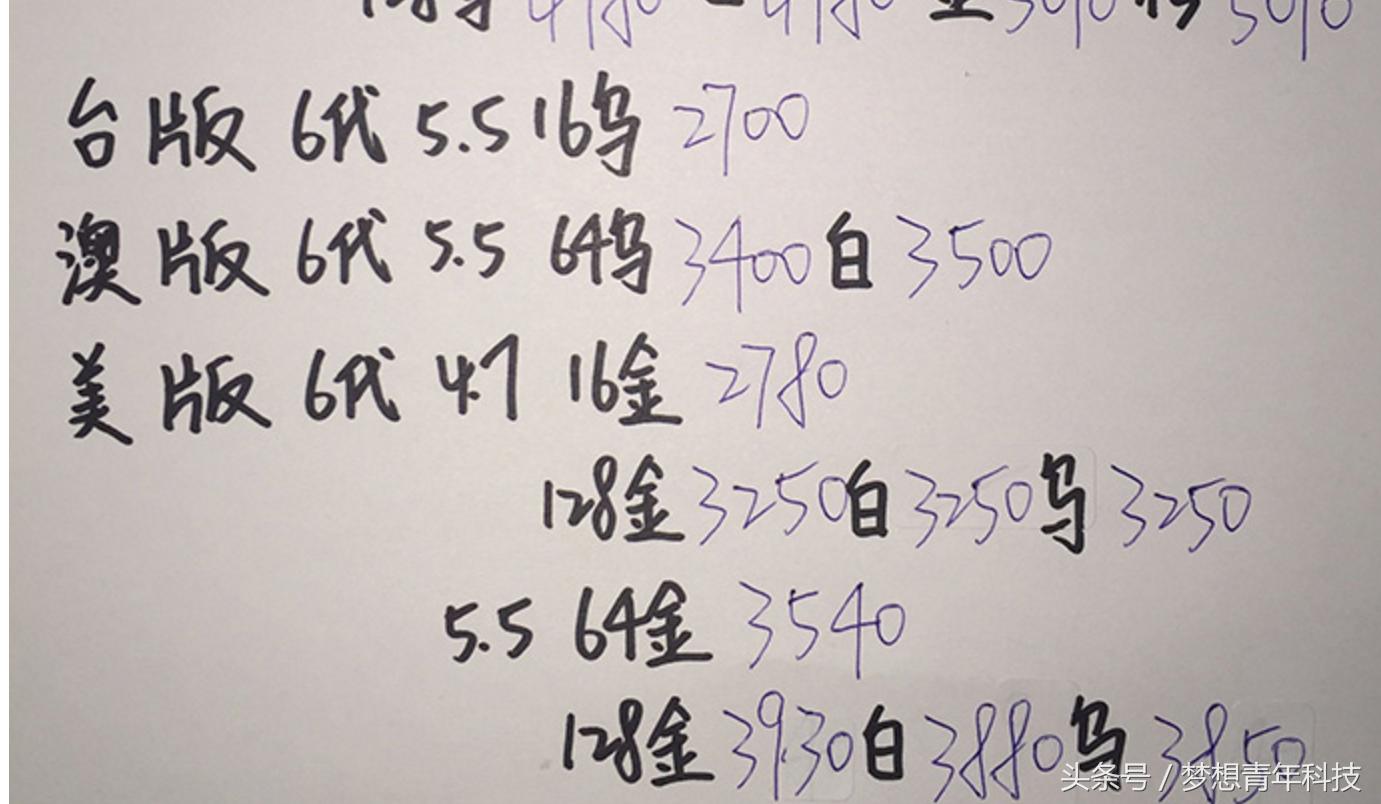 台版 6代 5.5 16乌 2700
澳版 6代 5.5 64乌 3400 白 3500
美版 6代 4.7 16金 2780
128金 3250 白 3250 乌 3250
5.5 64金 3540
128金 3930 白 3880 乌 3850
头条号 / 梦想青年科技